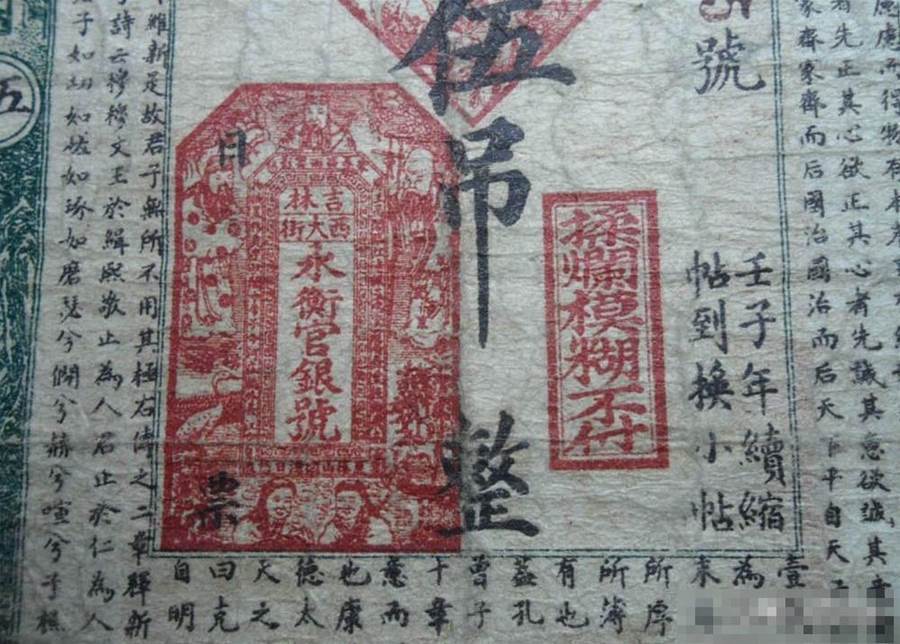 者先正其心欲正其心者先誠其意欲誠其意
家齊家齊而后國治國治而后天下平自天
號
壬子年續縮
帖到換小帖
揉爛模糊不付
伍吊整
吉林
西大街
永衡官銀號
日
票
五
維新是故君子無所不用其極右傳之二章釋新
詩云穆穆文王於緝熙敬止為人君止於仁為人
子如切如磋如琢如磨瑟兮僩兮赫兮喧兮
壹
為
末
所序
所簿
有也
益孔
曾子
十章
意而
也康
德太
天之
曰克
自明